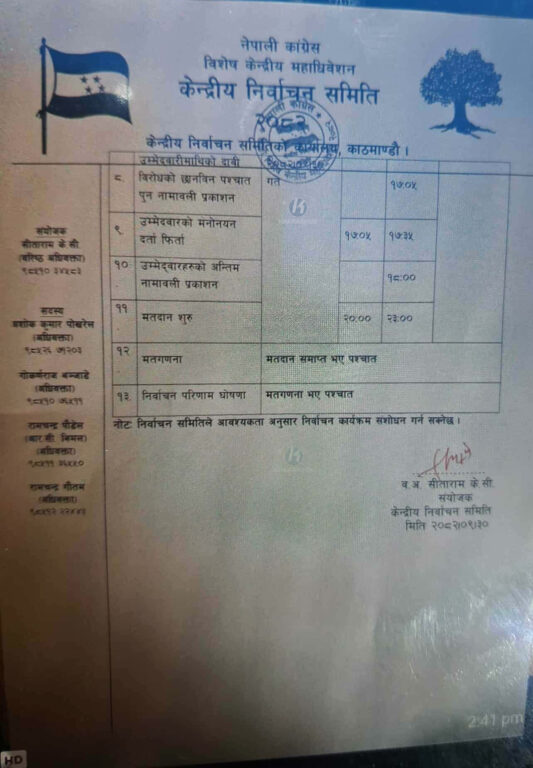 नेपाली कांग्रेस
विशेष केन्द्रीय महाधिवेशन
केन्द्रीय निर्वाचन समिति
केन्द्रीय निर्वाचन समितिको कार्यालय, काठमाण्डौ ।
उम्मेदवारीमाथिको दावी
८. विरोधको छानविन पश्चात गते १७:०५
पुन नामावली प्रकाशन
९. उम्मेदवारको मनोनयन दर्ता फिर्ता १७:०५ १७:३५
१० उम्मेद्वारहरुको अन्तिम नामावली प्रकाशन १८:००
११ मतदान शुरु २०:०० २३:००
१२ मतगणना मतदान समाप्त भए पश्चात
१३. निर्वाचन परिणाम घोषणा मतगणना भए पश्चात
नोट: निर्वाचन समितिले आवश्यकता अनुसार निर्वाचन कार्यक्रम संशोधन गर्न सक्नेछ ।
संयोजक
सीताराम के.सी.
(बरिष्ठ अधिवक्ता)
सदस्य
प्रशोक कुमार पोखरेल
(अधिवक्ता)
(अधिवक्ता)
रामचन्द्र पौडेल
(आर.सी. बिमल)
रामचन्द्र गौतम
(अधिवक्ता)
व.अ. सीताराम के.सी.
संयोजक
केन्द्रीय निर्वाचन समिति
मिति २०८२।०९।३०
2:41 pm
HD